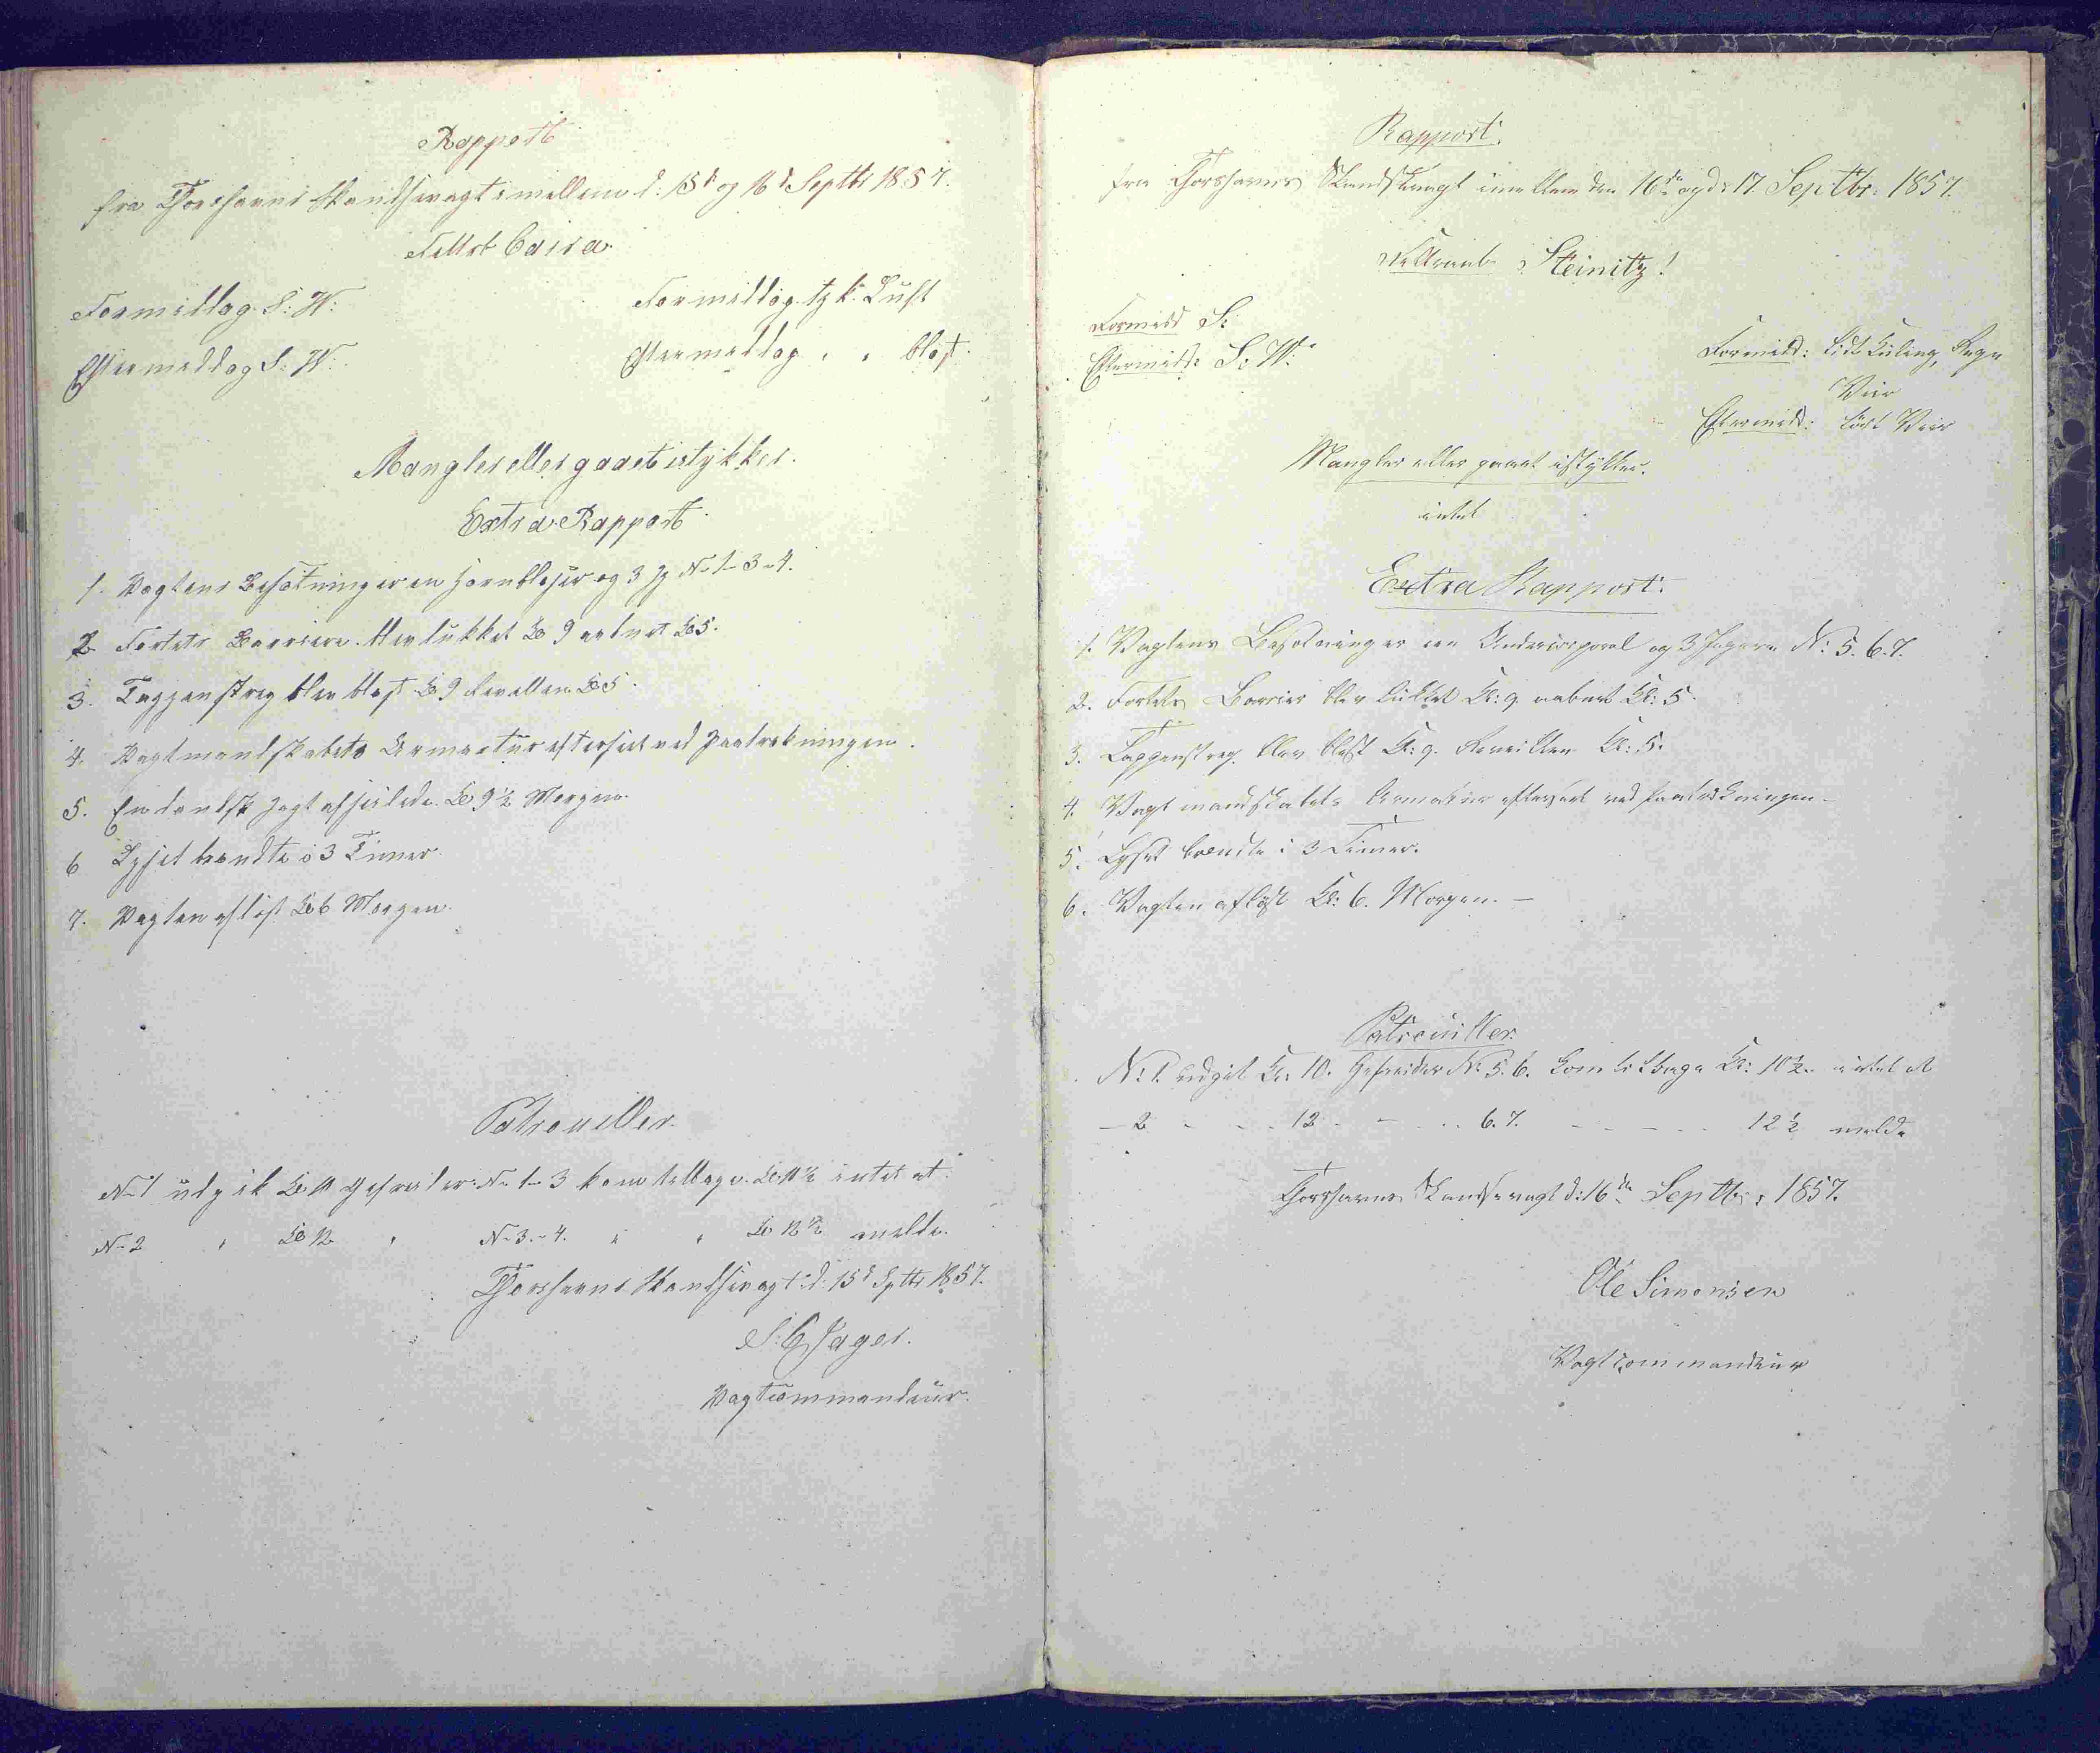 Rapport
fra Thorshavns Skandsevagt imellem d: 15d og 16d Septbr 1857.
Feltrb Caisa
Formiddag S: W:
Eftermeddag S: W:
Formiddag tyk Luft
Eftermeddag " " blæst.
Mangler eller gaaet istykker.
Extra Rapport
1. Vagtens Besætning er en Hornblæser og 3 Jg No 1-3-4.
2 Fortets Barriere blev lukket Kl 9 aabnet Kl 5.
3. Tappenstreg blev blæst Kl 9 Revellen Kl 5.
4. Vagtmandskabets Armartur efterseet ved Paatrækningen.
5. En dansk Jagt afseilede Kl 9½ Morgen.
6 Lyset brændte i 3 Timer.
7. Vagten afløst Kl 6 Morgen.
Patrouiller.
No 1 udgik Kl 11 Gefreider No 1-3 kom tilbage Kl 11½ intet at
No 2 " Kl 12 " No 3-4. " " Kl 12½ melde.
Thorshavns Skandsevagt d: 15d Sptbr 1857.
Jager.
Vagtcommandeur.
Rapport.
fra Thorshavns Skandsevagt imellem den 16de og d: 17. Septbr: 1857.
Feltraab Steinitz!
Formidd S:
Eftermidd: S: W:
Formidd: Lidt Kuling, Regn
Veir
Eftermidd: tört Veir
Mangler eller gaaet istykker.
intet
Extra Rapport.
1. Vagtens Besætning er een Undercorporal og 3 Jægere No: 5. 6. 7.
2. Fortets Barrier blev lukket Kl: 9. aabnet Kl: 5.
3. Tappenstreg blev blæst Kl: 9. Reveillen Kl: 5.
4. Vagtmandskabets Armatur efterseet ved Paatrækningen –
5. Lyset brændte i 3 Timer.
6. Vagten afløst Kl: 6. Morgen. –
Patrouiller.
No: 1. udgik Kl: 10. Gefreider No 5. 6. kom tilbage Kl: 10½. intet at
– 2 - - - 12 - - - - 6. 7. - - - - - 12½ melde
Thorshavns Skandsevagt d: 16de Septbr: 1857.
Ole Simonsen
Vagtcommandeur